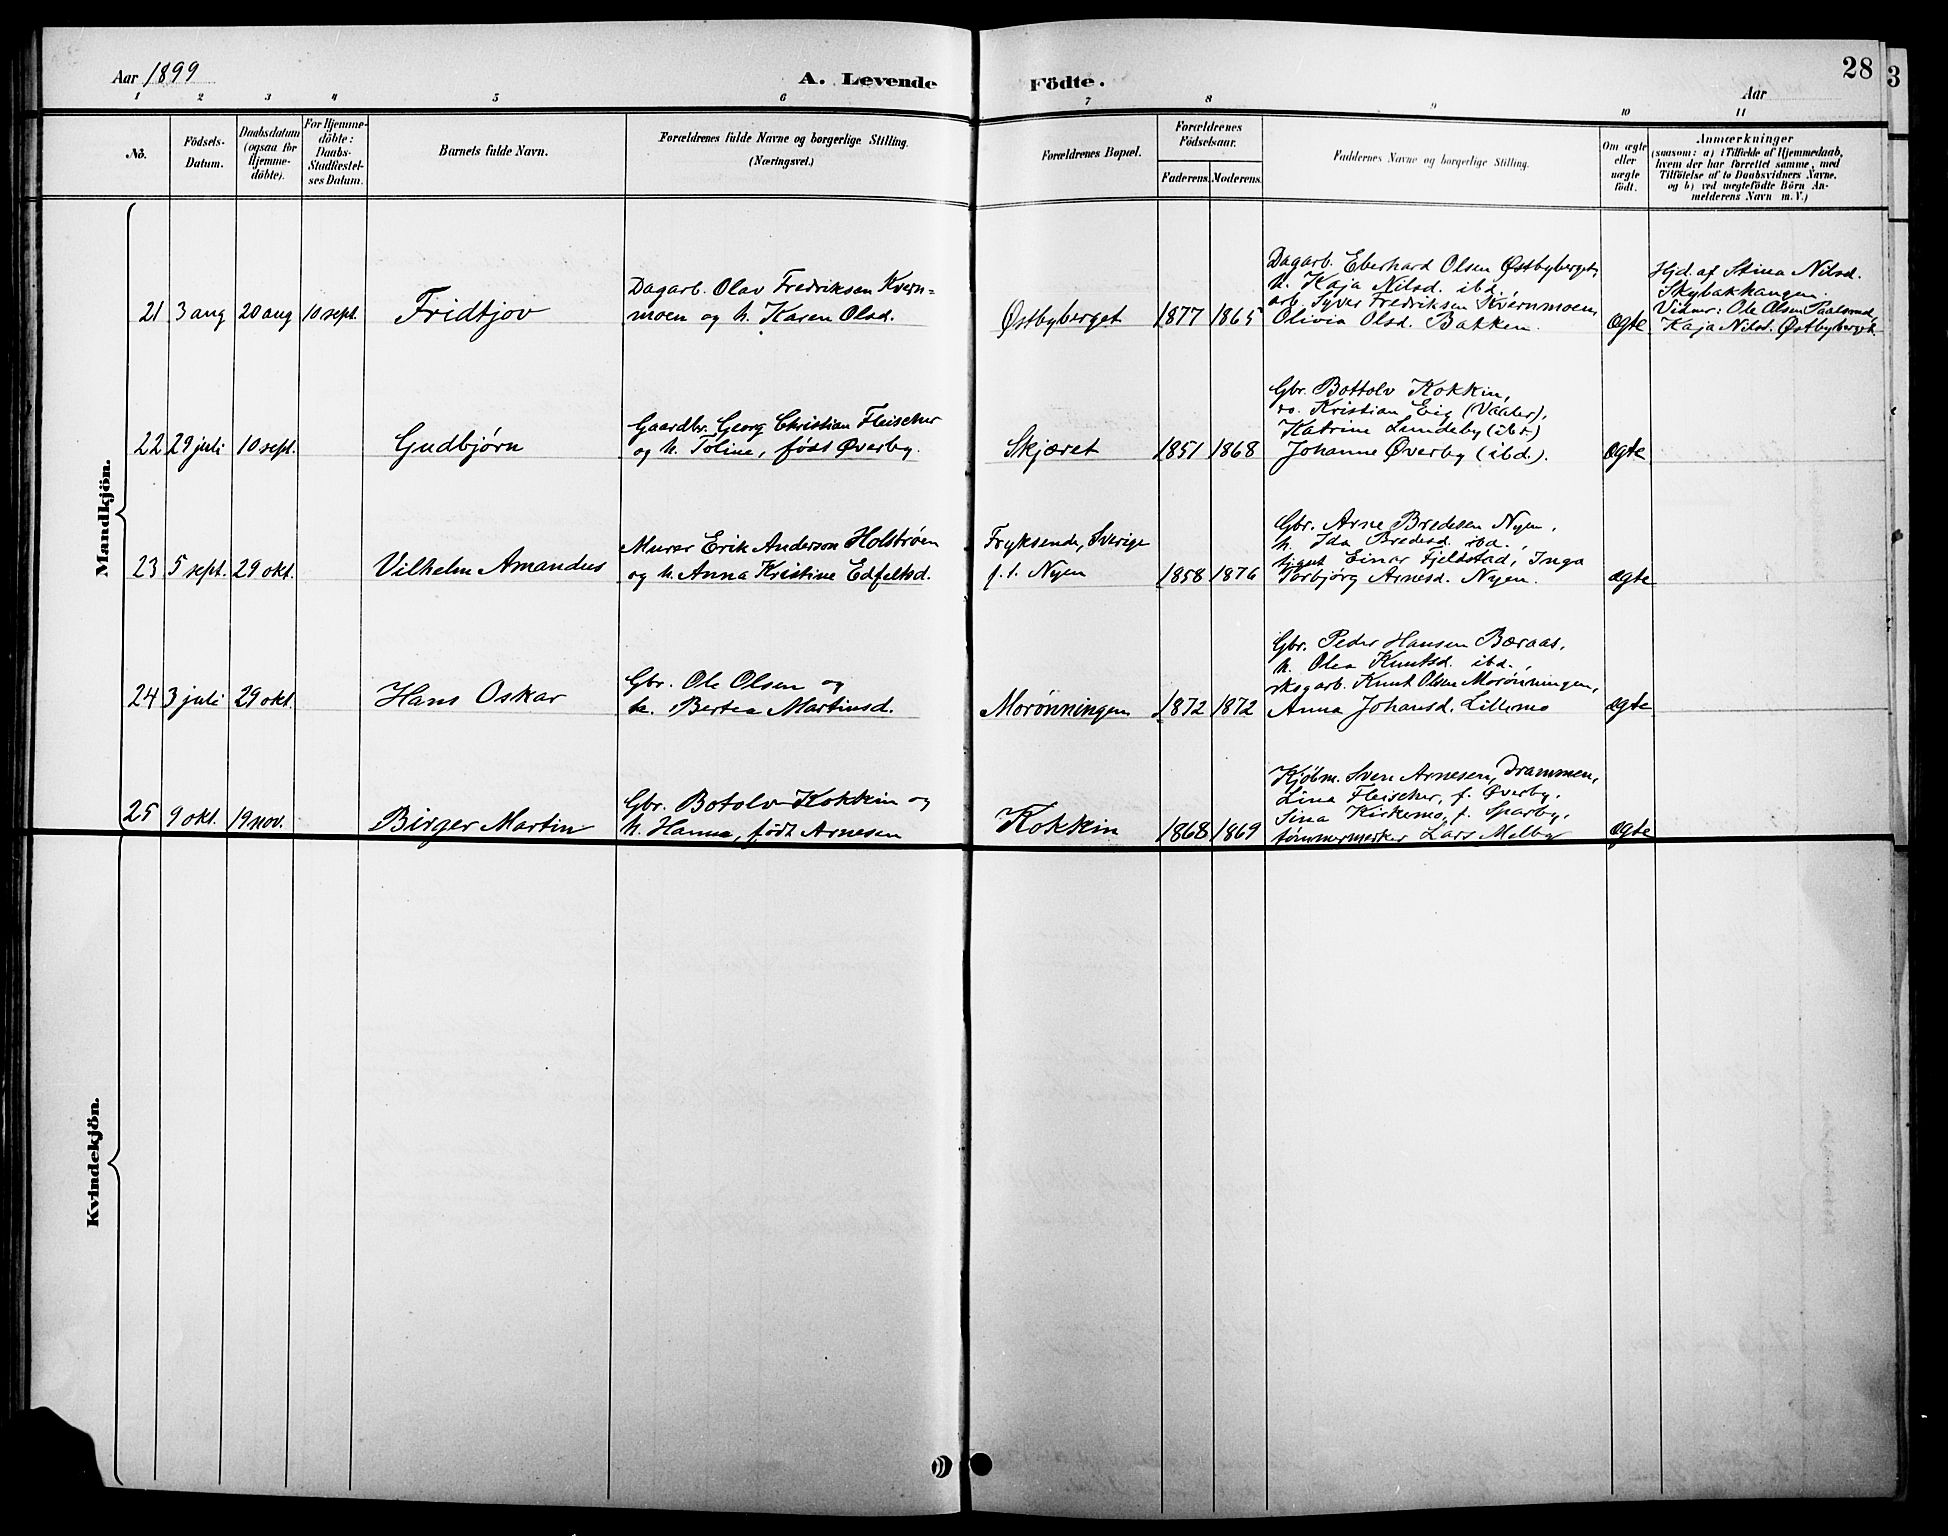 Aar 1899
A. Levende Födte.
28
3
Aar
1 2 3 4 5 6 7 8 9 10 11
No.
Födsels-
Datum.
Daabsdatum
(ogsaa for
Hjemme-
döbte).
For Hjemme-
döbte:
Daabs-
Stadfæstel-
ses Datum.
Barnets fulde Navn.
Forældrenes fulde Navne og borgerlige Stilling.
(Næringsvei.)
Forældrenes Bopæl.
Forældrenes
Födselsaar.
Faderens. Moderens.
Faddernes Navne og borgerlige Stilling.
Om ægte
eller
uægte
födt.
Anmærkninger
(saasom: a) i Tilfælde af Hjemmedaab,
hvem der har forrettet samme, med
Tilföielse af to Daabsvidners Navne,
og b) ved uegtefödte Börn An-
melderens Navn m. V.)
Mandkjön.
21 3 aug 20 aug 10 sept. Fridtjov
Dagarb. Olav Fredriksen Kvern-
moen og h. Karen Olsd.
Østbyberget 1877 1865
Dagarb. Eberhard Olsen Østbyberget,
h. Kaja Nilsd. ibd.
arb. Syver Fredriksen Kvernmoen,
Olivia Olsd. Bakken.
ægte
Hjd. af Stina Nilsd.
Skybakhangen.
Vidner: Ole Olsen Paalsrud,
Kaja Nilsd. Østbyberget.
22 29 juli 10 sept. Gudbjørn
Gaardbr. Georg Christian Fleischer
og h. Toline, født Øverby.
Skjæret 1851 1868
Gbr. Bottolv Kokkin,
do. Kristian Eig (Vaaler),
Katrine Lundeby (ibd.)
Johanne Øverby (ibd.).
ægte
23 5 sept. 29 okt. Vilhelm Amandus
Murer Erik Anderson Holstrøm
og h. Anna Kristine Edfeltsd.
Fryksende, Sverige
f. t. Nyen 1858 1876
Gbr. Arne Bredesen Nyen,
h. Ida Bredesd. ibd.,
Einar Fjeldstad, Inga
Torbjørg Arnesd. Nyen.
ægte
24 3 juli 29 okt. Hans Oskar
Gbr. Ole Olsen og
h. Bertea Martinsd.
Morønningen 1872 1872
Gbr. Peder Hansen Bæraas,
h. Olea Knutsd. ibd.,
skogarb. Knut Olsen Morønningen,
Anna Johansd. Lillemo
ægte
25 9 okt. 19 nov. Birger Martin
Gbr. Botolv Kokkin og
h. Hanna, født Arnesen
Kokkin 1868 1869
Kjøbm. Sven Arnesen, Drammen,
Lina Fleischer, f. Øverby,
Sina Kirkemo, f. Sparby,
tømmermerker Lars Melby
ægte
Kvindekjön.